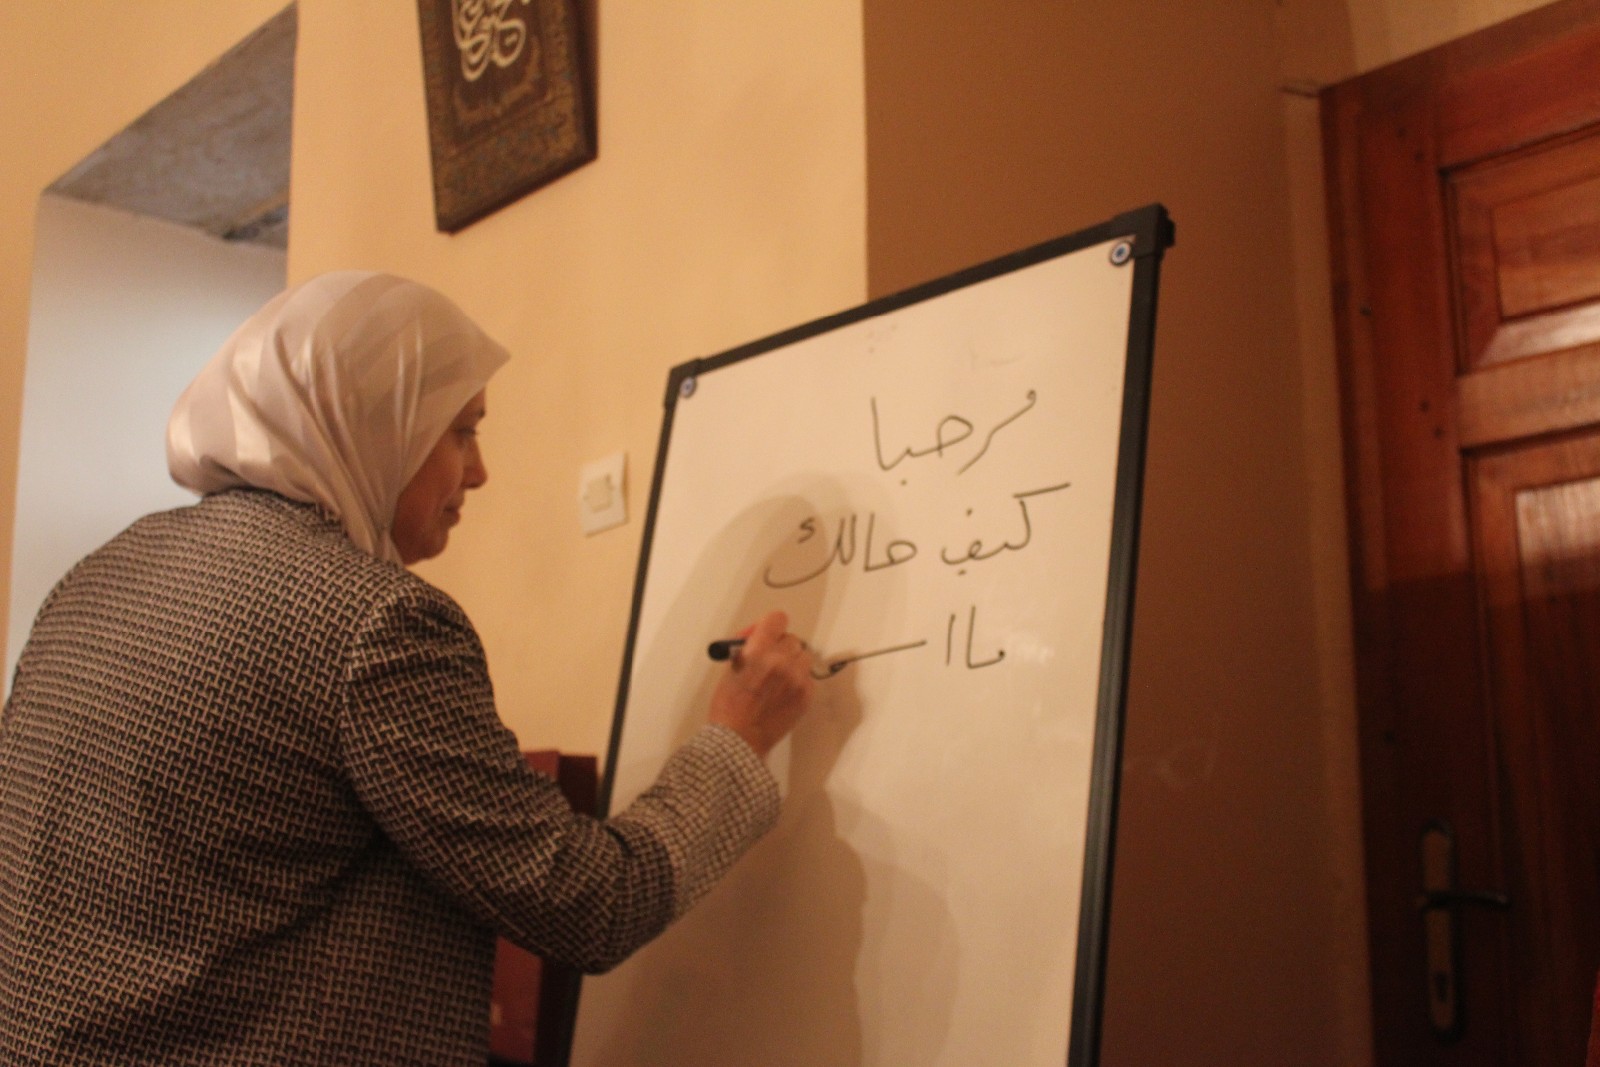 مرحبا
كيف حالك
ما اسم